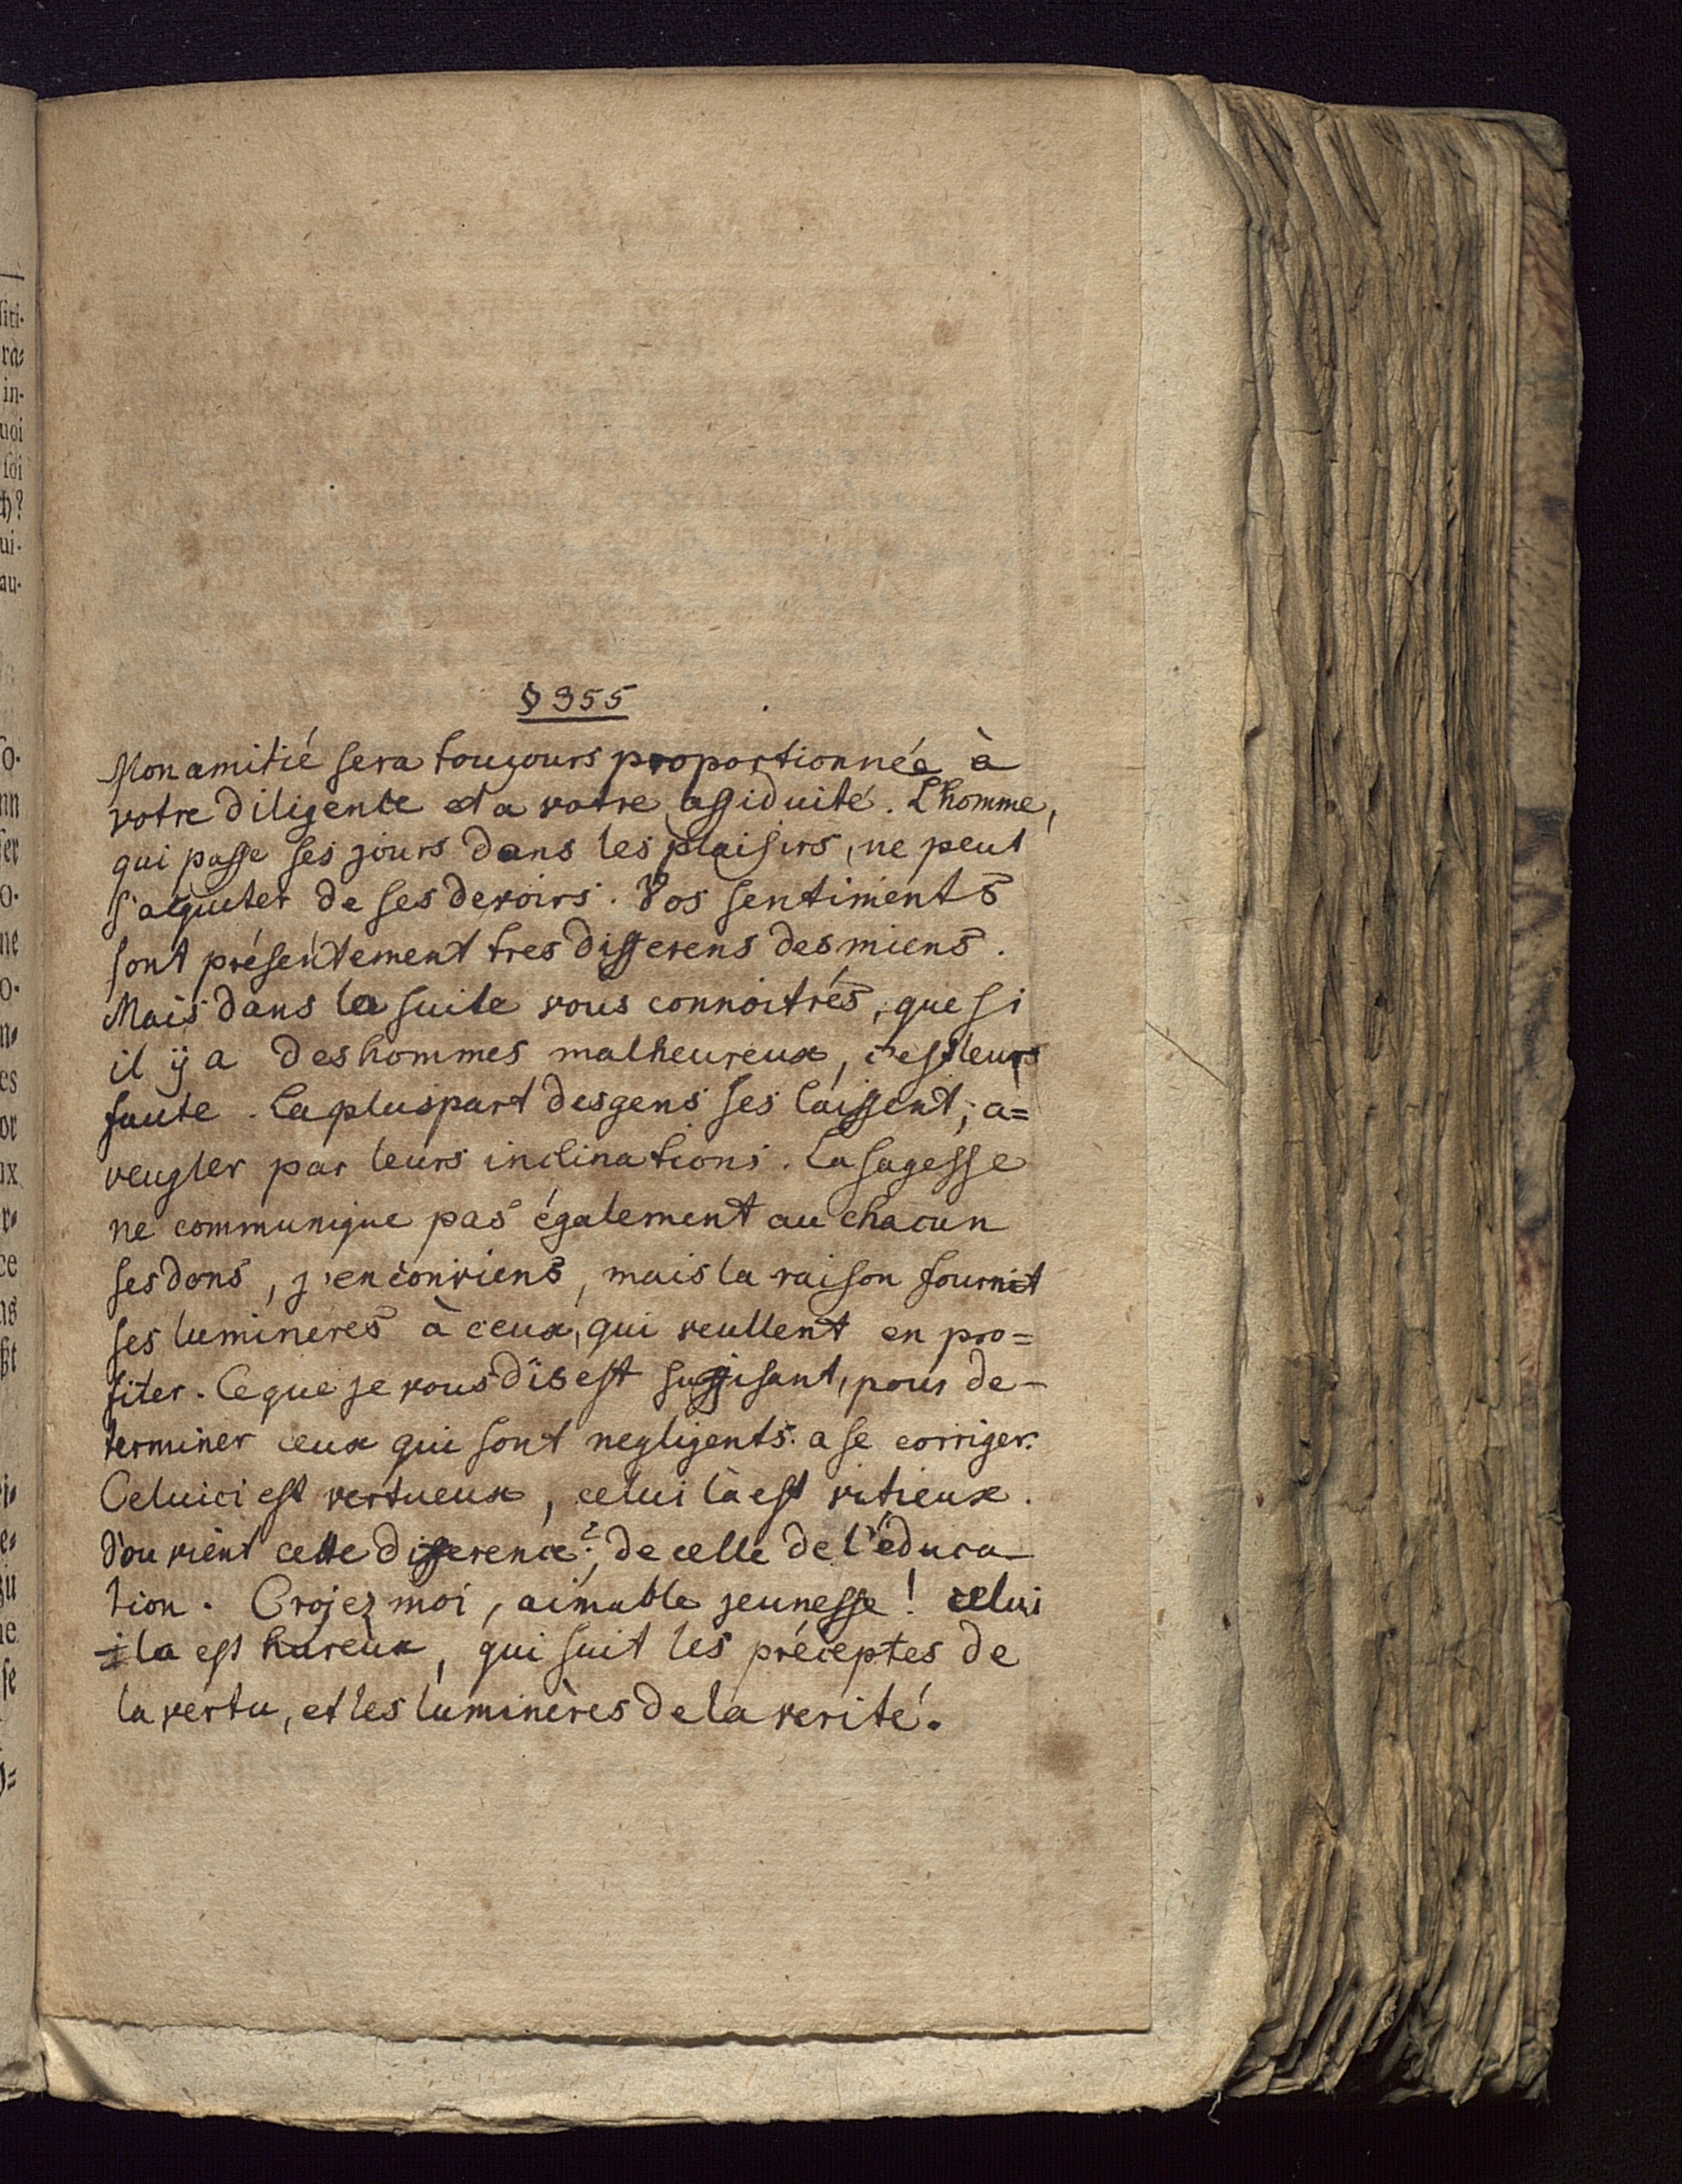 § 355
Mon amitié sera tousjours proportionnée à
votre diligente et a votre assiduité. L'homme,
qui passe ses jours dans les plaisirs, ne peut
s'aquiter de ses devoirs. Vos sentiments
sont présentement tres differens des miens.
Mais dans la suite vous connoitrés, que si
il ÿ a des hommes malheureux, c'est leurs
faute. La pluspart des gens ses laissent, a=
veugler par leurs inclinations. La sagesse
ne communique pas également au chacun
ses dons, j'en conviens, mais la raison fournit
ses luminéres à ceux, qui veullent en pro=
fiter. Ce que je vous dis est suffisant, pour de-
terminer ceux qui sont negligents. a se corriger.
Celuici est vertueux, celui là est vitieux.
d'ou vient cette difference? de celle de l'éduca-
tion. Crojez moi, aimable jeunesse! celui
la est hureux, qui suit les préceptes de
la vertu, et les luminères de la verité.
siti-
ra=
in-
uoi
soi
ch?
ui-
au-
so-
nn
ser
o-
ne
o-
n=
es
or
ux
r=
ce
ns
ßt
e=
zu
ne
se